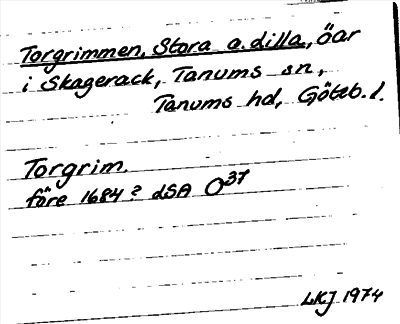 Torgrimmen, Stora a. dilla, öar
i Skagerack, Tanums sn,
Tanums hd, Göteb. l.
Torgrim.
före 1684? dSA O37
LKJ 1974